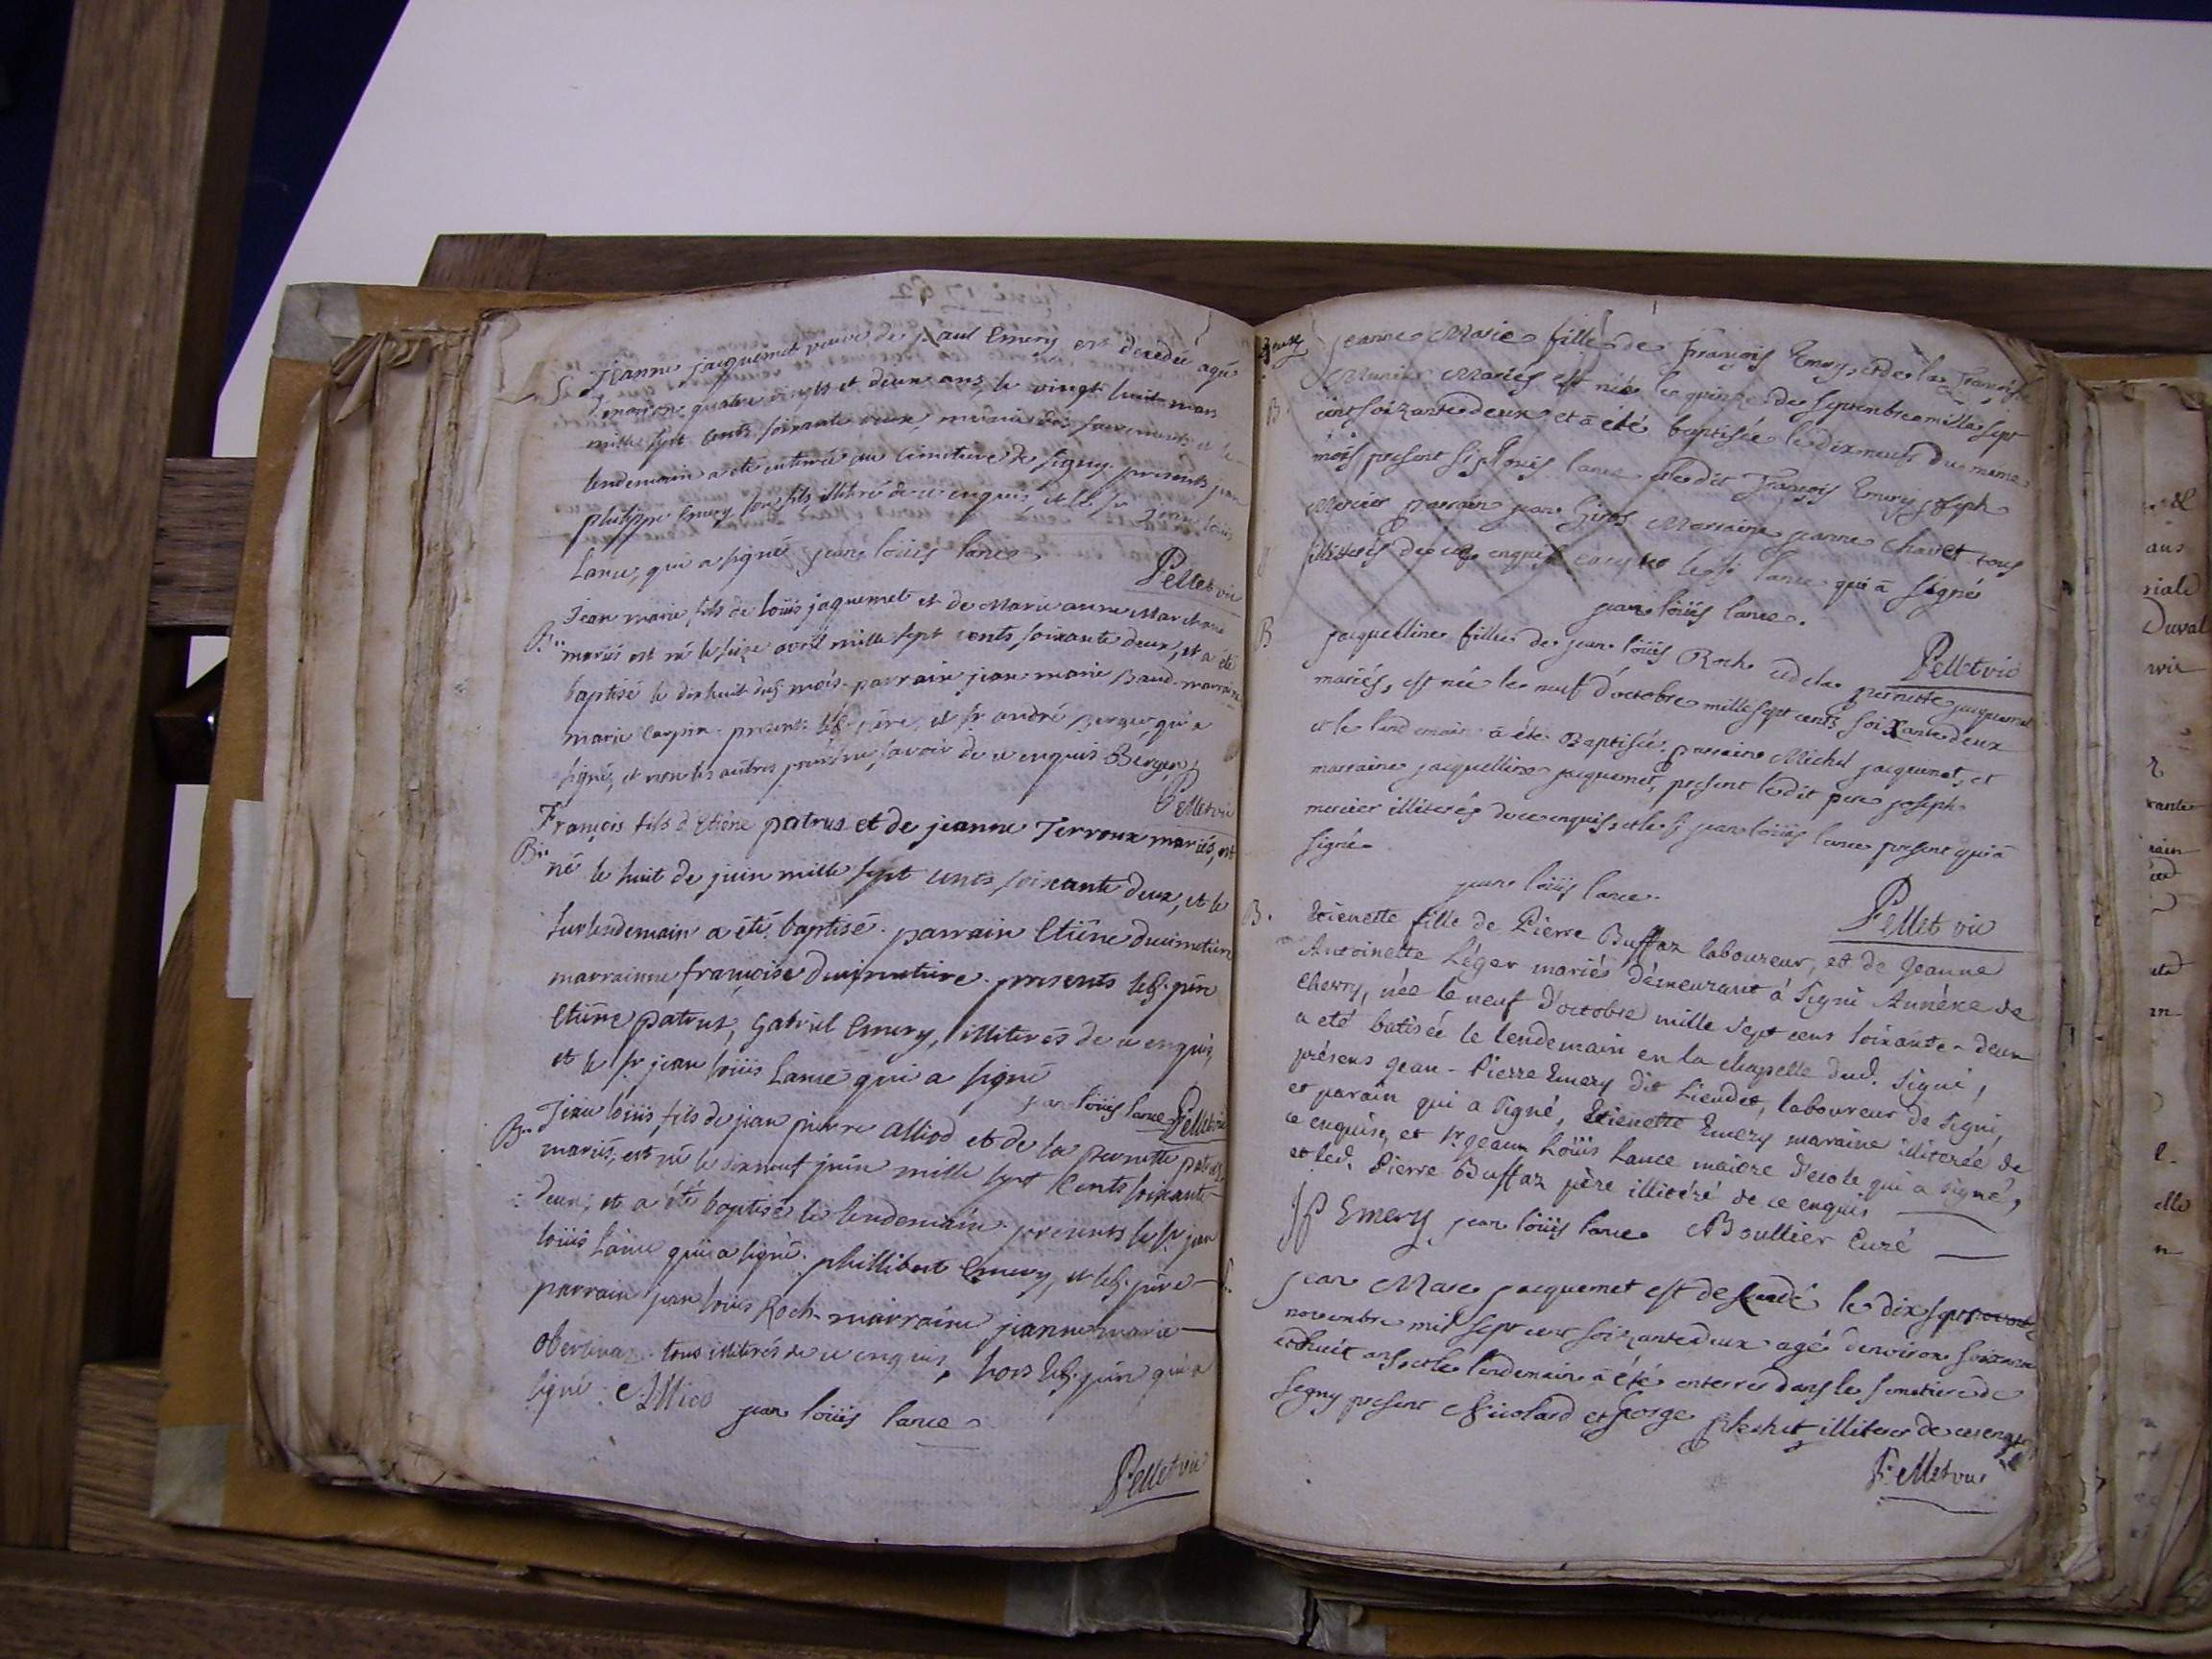 S. Jeanne jacquemet veuve de paul Emery est decedée agée
d'environ quatre vingts et deux ans, le vingt huit mars
mille sept cents soixante deux, munie des sacrements et le
lendemain a été enterrée au cimetiere de signy. presents jean
philippe Emery son fils illitéré de ce enquis, et le sr jean louis
Lance, qui a signé jean loüis lance
Pellet vic
B. Jean marie fils de loüis jaquemet et de Marie anne Marchand
mariés est né le seize avril mille sept cents soixante deux, et a été
baptisé le dix huit dud. mois. parrain jean marie Baud. marraine
marie Carpin. presents led. père, et sr andré Berger qui a
signé, et non les autres pour ne savoir de ce enquis Berger
Pellet vic
François fils d'Etiéne patrus et de jeanne Terroux mariés, est
B. né le huit de juin mille sept cents soixante deux, et le
surlendemain a été baptisé. parrain Etiéne ducimetiere
marrainne françoise ducimetiere. presents led. père
Etiéne patrus, Gabriel Emery, illiterés de ce enquis,
et le sr jean loüis Lance qui a signé
jean loüis lance Pellet vic
B. Jean loüis, fils de jean pierre alliod et de la pernette patrus
mariés, est né le dix neuf juin mille sept cents soixante
deux, et a été baptisé le lendemain. presents le sr jean
loüis Lance qui a signé. phillibert Emery, et led. père
parrain jean loüis Roch. marraine jeanne marie
tous illiterés de ce enquis, hors led. père qui a
signé. Alliod jean loüis lance
Pellet vic
jeanne Marie fille de François Emery, et de la Françoise
Munier Mariés est née le quinze de septembre mille sept
B. cent soixante deux et a été baptisée le dix neuf du meme
mois present sr jean loüis lance et le dit François Emery joseph
Mercier parrain jean Girod Marraine jeanne Chavet tous
illiterés de ce enquis excepté le sr lance qui a signé
jean loüis lance.
Pellet vic
B jacquelline fille de jean loüis Roch et de la pernette jacquemet
mariés, est née le neuf d'octobre mille sept cents soixante deux
et le lendemain a été Baptisée, parrain Michel jacquemet, et
marraine jacquelline jacquemet, present le dit pere joseph
mercier illiterés de ce enquis, et le sr jean loüis lance present qui a
signé
jean loüis lance.
Pellet vic
B. Etienette fille de Pierre Buffaz laboureur, et de Jeanne
Antoinette Léger mariés démeurant à Signi Annéxe de
Chevry, née le neuf d'octobre mille sept cens soixante-deux
a été batisée le lendemain en la chapelle dud. Signi,
présens Jean-Pierre Emery dit Lieudet, laboureur de Signi,
et parain qui a signé, Etienette Emery maraine illiterée de
ce enquise, et sr Jean Loüis Lance maitre d'ecole qui a signé,
et led. Pierre Buffaz père illitéré de ce enquis
JP Emery jean loüis lance Boullier Curé
jean Marc jacquemet est decedé le dix sept
novembre mil sept cent soixante deux agé d'environ soixante
et huit ans et le lendemain a été enterré dans le simetiere de
segny present Nicolard et george illiterés de ce enquis
Pellet vic